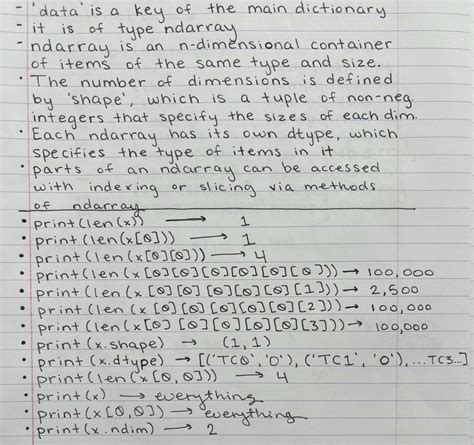 - 'data' is a key of the main dictionary
- it is of type ndarray
- ndarray is an n-dimensional container
of items of the same type and size.
• The number of dimensions is defined
by 'shape', which is a tuple of non-neg.
integers that specify the sizes of each dim.
• Each ndarray has its own dtype, which
specifies the type of items in it
• parts of an ndarray can be accessed
with indexing or slicing via methods
of ndarray
• print(len(x)) → 1
• print(len(x[0])) → 1
• print(len(x[0][0])) → 4
• print(len(x[0][0][0][0][0][0])) → 100,000
• print(len(x[0][0][0][0][0][1])) → 2,500
• print(len(x[0][0][0][0][0][2])) → 100,000
• print(len(x[0][0][0][0][0][3])) → 100,000
• print(x.shape) → (1,1)
• print(x.dtype) → [('TC0','O'),('TC1','O'),...TC3...]
• print(len(x[0,0])) → 4
• print(x) → everything
• print(x[0,0]) → everything
• print(x.ndim) → 2